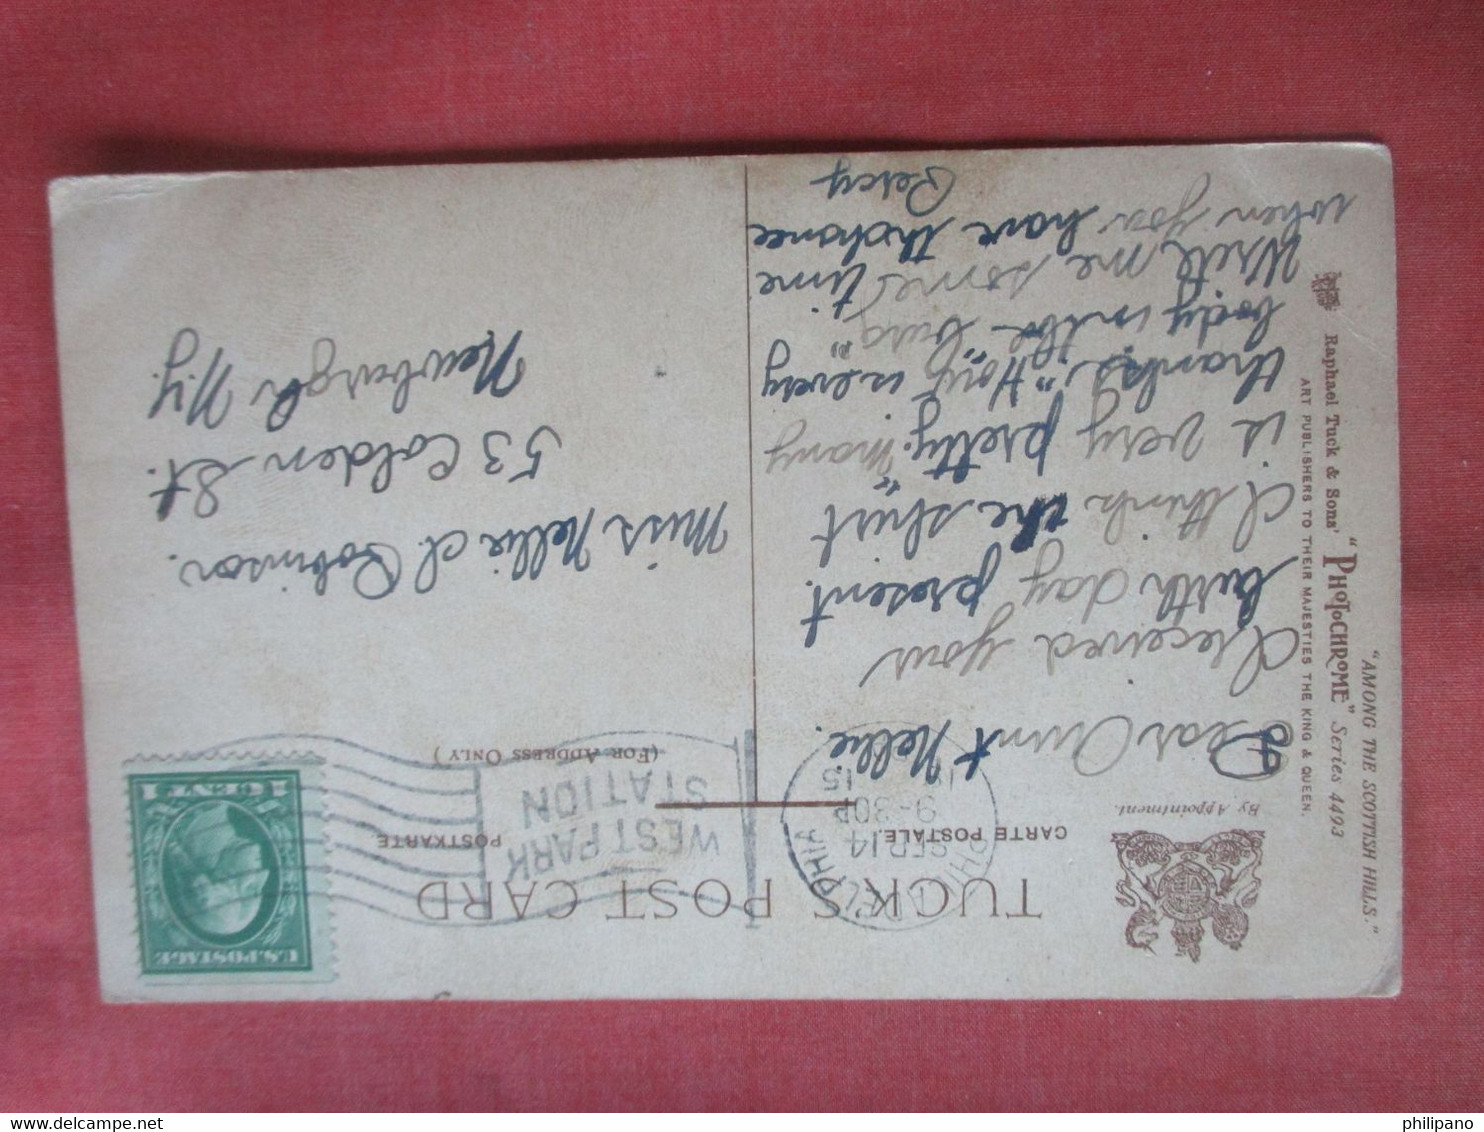 "AMONG THE SCOTTISH HILLS."
Raphael Tuck & Sons' "PHOTOCHROME" Series 4493
ART PUBLISHERS TO THEIR MAJESTIES THE KING & QUEEN.
By Appointment.
TUCK'S POST CARD
CARTE POSTALE.
POSTKARTE
(FOR ADDRESS ONLY)
PHILADELPHIA
SEP 14
9-30P
15
WEST PARK
STATION
U.S. POSTAGE
1 CENT 1
Dear Aunt Nellie.
I received your
birth day present.
I think the "shirt"
is very pretty. many
thanks. "Houf" is every
body in the "burg"
Write me some time
when you have thchance
Percy
Miss Nellie I. Robinson.
53 Colden St.
Newburgh N.Y.
philipano